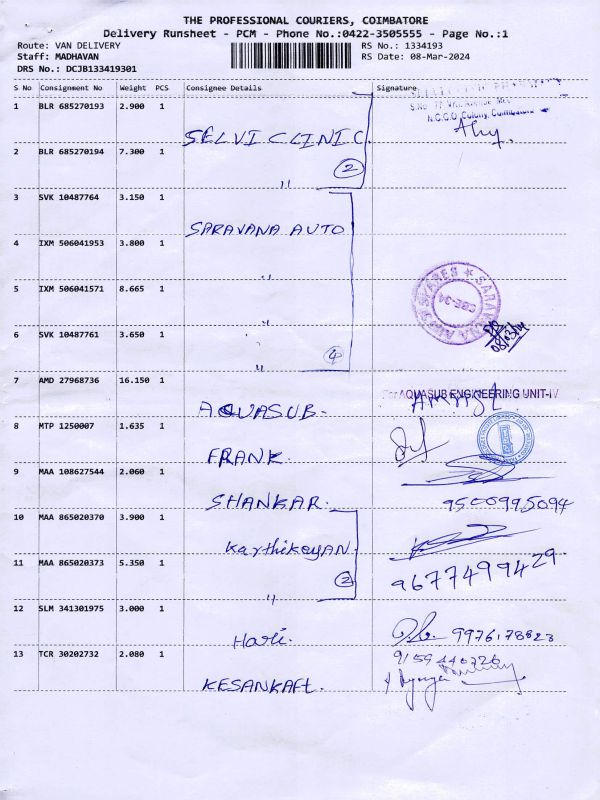 THE PROFESSIONAL COURIERS, COIMBATORE
Delivery Runsheet - PCM - Phone No.:0422-3505555 - Page No.:1
Route: VAN DELIVERY RS No.: 1334193
Staff: MADHAVAN RS Date: 08-Mar-2024
DRS No.: DCJB133419301
S No Consignment No Weight PCS Consignee Details Signature
1 BLR 685270193 2.900 1 SELVI CLINIC
N.G.G.O. Colony, Coimbatore
2 BLR 685270194 7.300 1 " 2
3 SVK 10487764 3.150 1 SARAVANA AUTO
4 IXM 506041953 3.800 1 "
5 IXM 506041571 8.665 1 "
SARAVANA AUTO SPARES
CBE-34
6 SVK 10487761 3.650 1 " 4
08/03/24
7 AMD 27968736 16.150 1 AQUASUB.
For AQUASUB ENGINEERING UNIT-IV
8 MTP 1250007 1.635 1 FRANK.
9 MAA 108627544 2.060 1 SHANKAR. 9500995094
10 MAA 865020370 3.900 1 Karthikeyan.
11 MAA 865020373 5.350 1 " 2 9677499429
12 SLM 341301975 3.000 1 Hari. 9976178823
13 TCR 30202732 2.080 1 KESANKAft. 9159446726